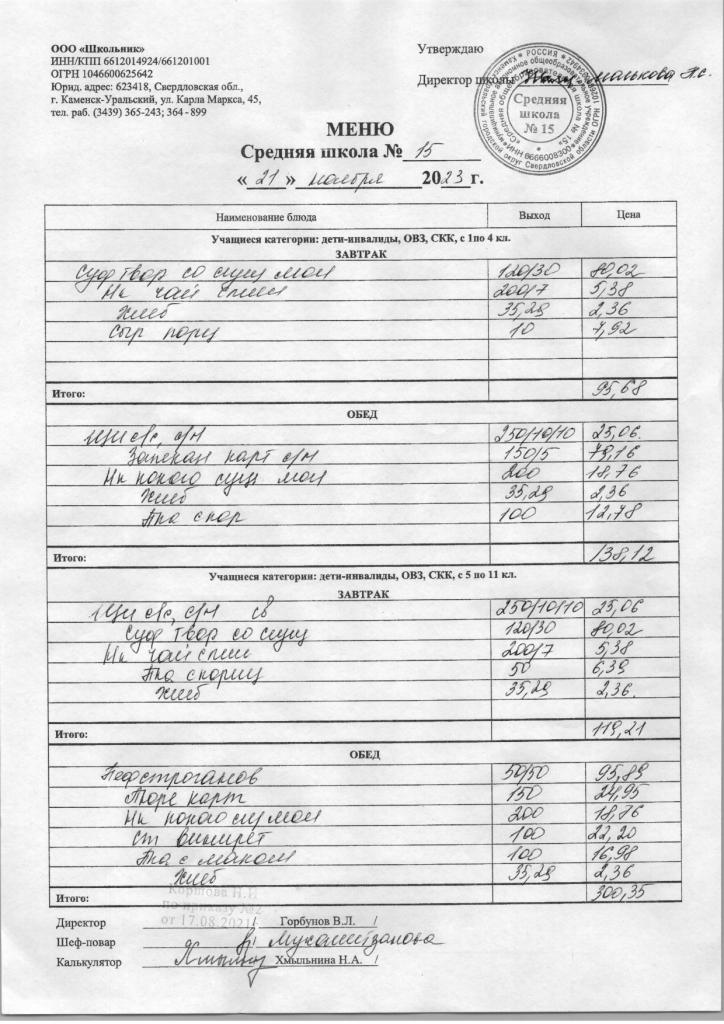 ООО «Школьник»
ИНН/КПП 6612014924/661201001
ОГРН 1046600625642
Юрид. адрес: 623418, Свердловская обл.,
г. Каменск-Уральский, ул. Карла Маркса, 45,
тел. раб. (3439) 365-243; 364 - 899
Утверждаю
Директор школы
Средняя
школа
№ 15
МЕНЮ
Средняя школа № 15
« 21 » ноября 2023 г.
Наименование блюда Выход Цена
Учащиеся категории: дети-инвалиды, ОВЗ, СКК, с 1по 4 кл.
ЗАВТРАК
Суф твор со сгущ мол 120/30 80,02
Нк чай слим 200/7 5,38
Хлеб 35,29 2,36
Сыр порц 10 7,92
Итого: 95,68
ОБЕД
Щи с/с, с/м 250/10/10 25,06
Запекан карт с/м 150/5 79,16
Нк какао сгущ мол 200 18,76
Хлеб 35,29 2,36
Пка с пор 100 12,78
Итого: 138,12
Учащиеся категории: дети-инвалиды, ОВЗ, СКК, с 5 по 11 кл.
ЗАВТРАК
Щи с/с, с/м св 250/10/10 25,06
Суф твор со сгущ 120/30 80,02
Нк чай слим 200/7 5,38
Пка 50 6,39
Хлеб 35,29 2,36
Итого: 119,21
ОБЕД
Бефстроганов 50/50 95,89
Пюре карт 150 24,95
Нк какао сгу мол 200 18,76
Ст винегрет 100 22,20
Пка с маком 100 16,98
Хлеб 35,29 2,36
Итого: 300,35
Коршова Н.И
по приказу №2
от 17.08.2021
Директор / Горбунов В.Л. /
Шеф-повар /
Калькулятор Хмыльнина Н.А. /